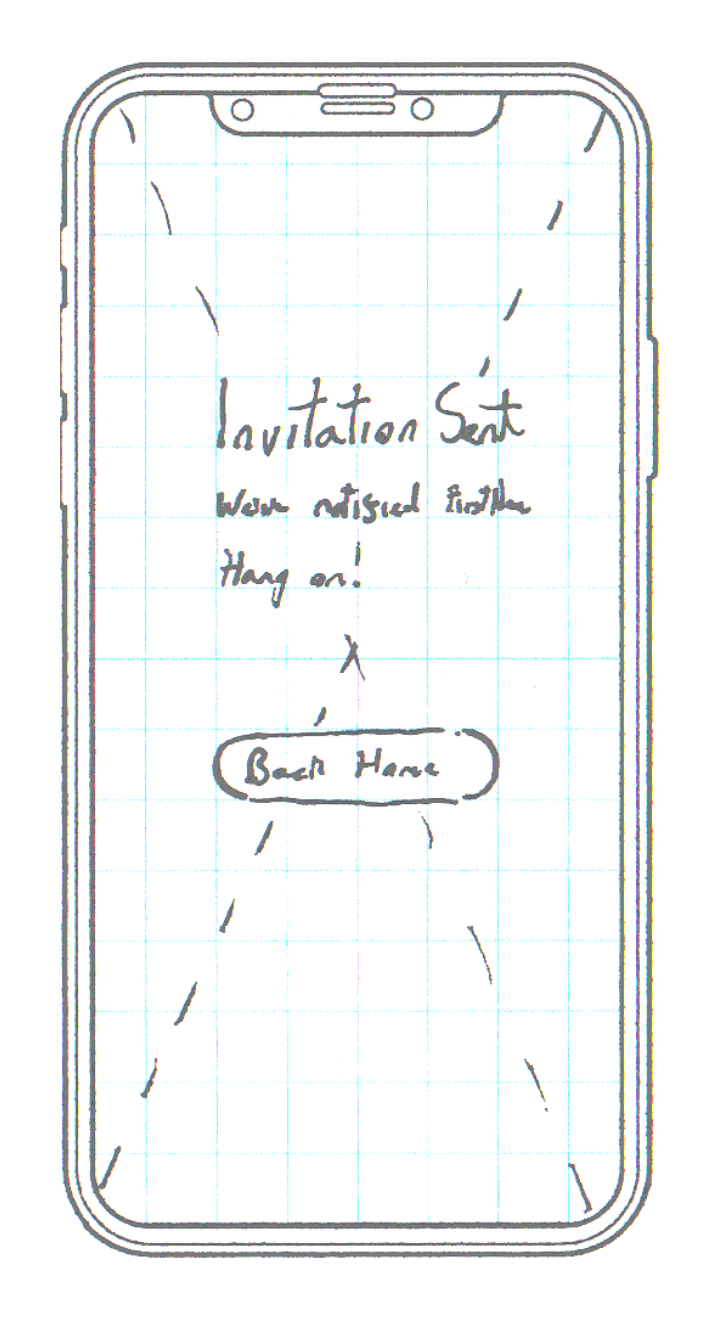 Invitation Sent
We've notified
Hang on!
Back Home